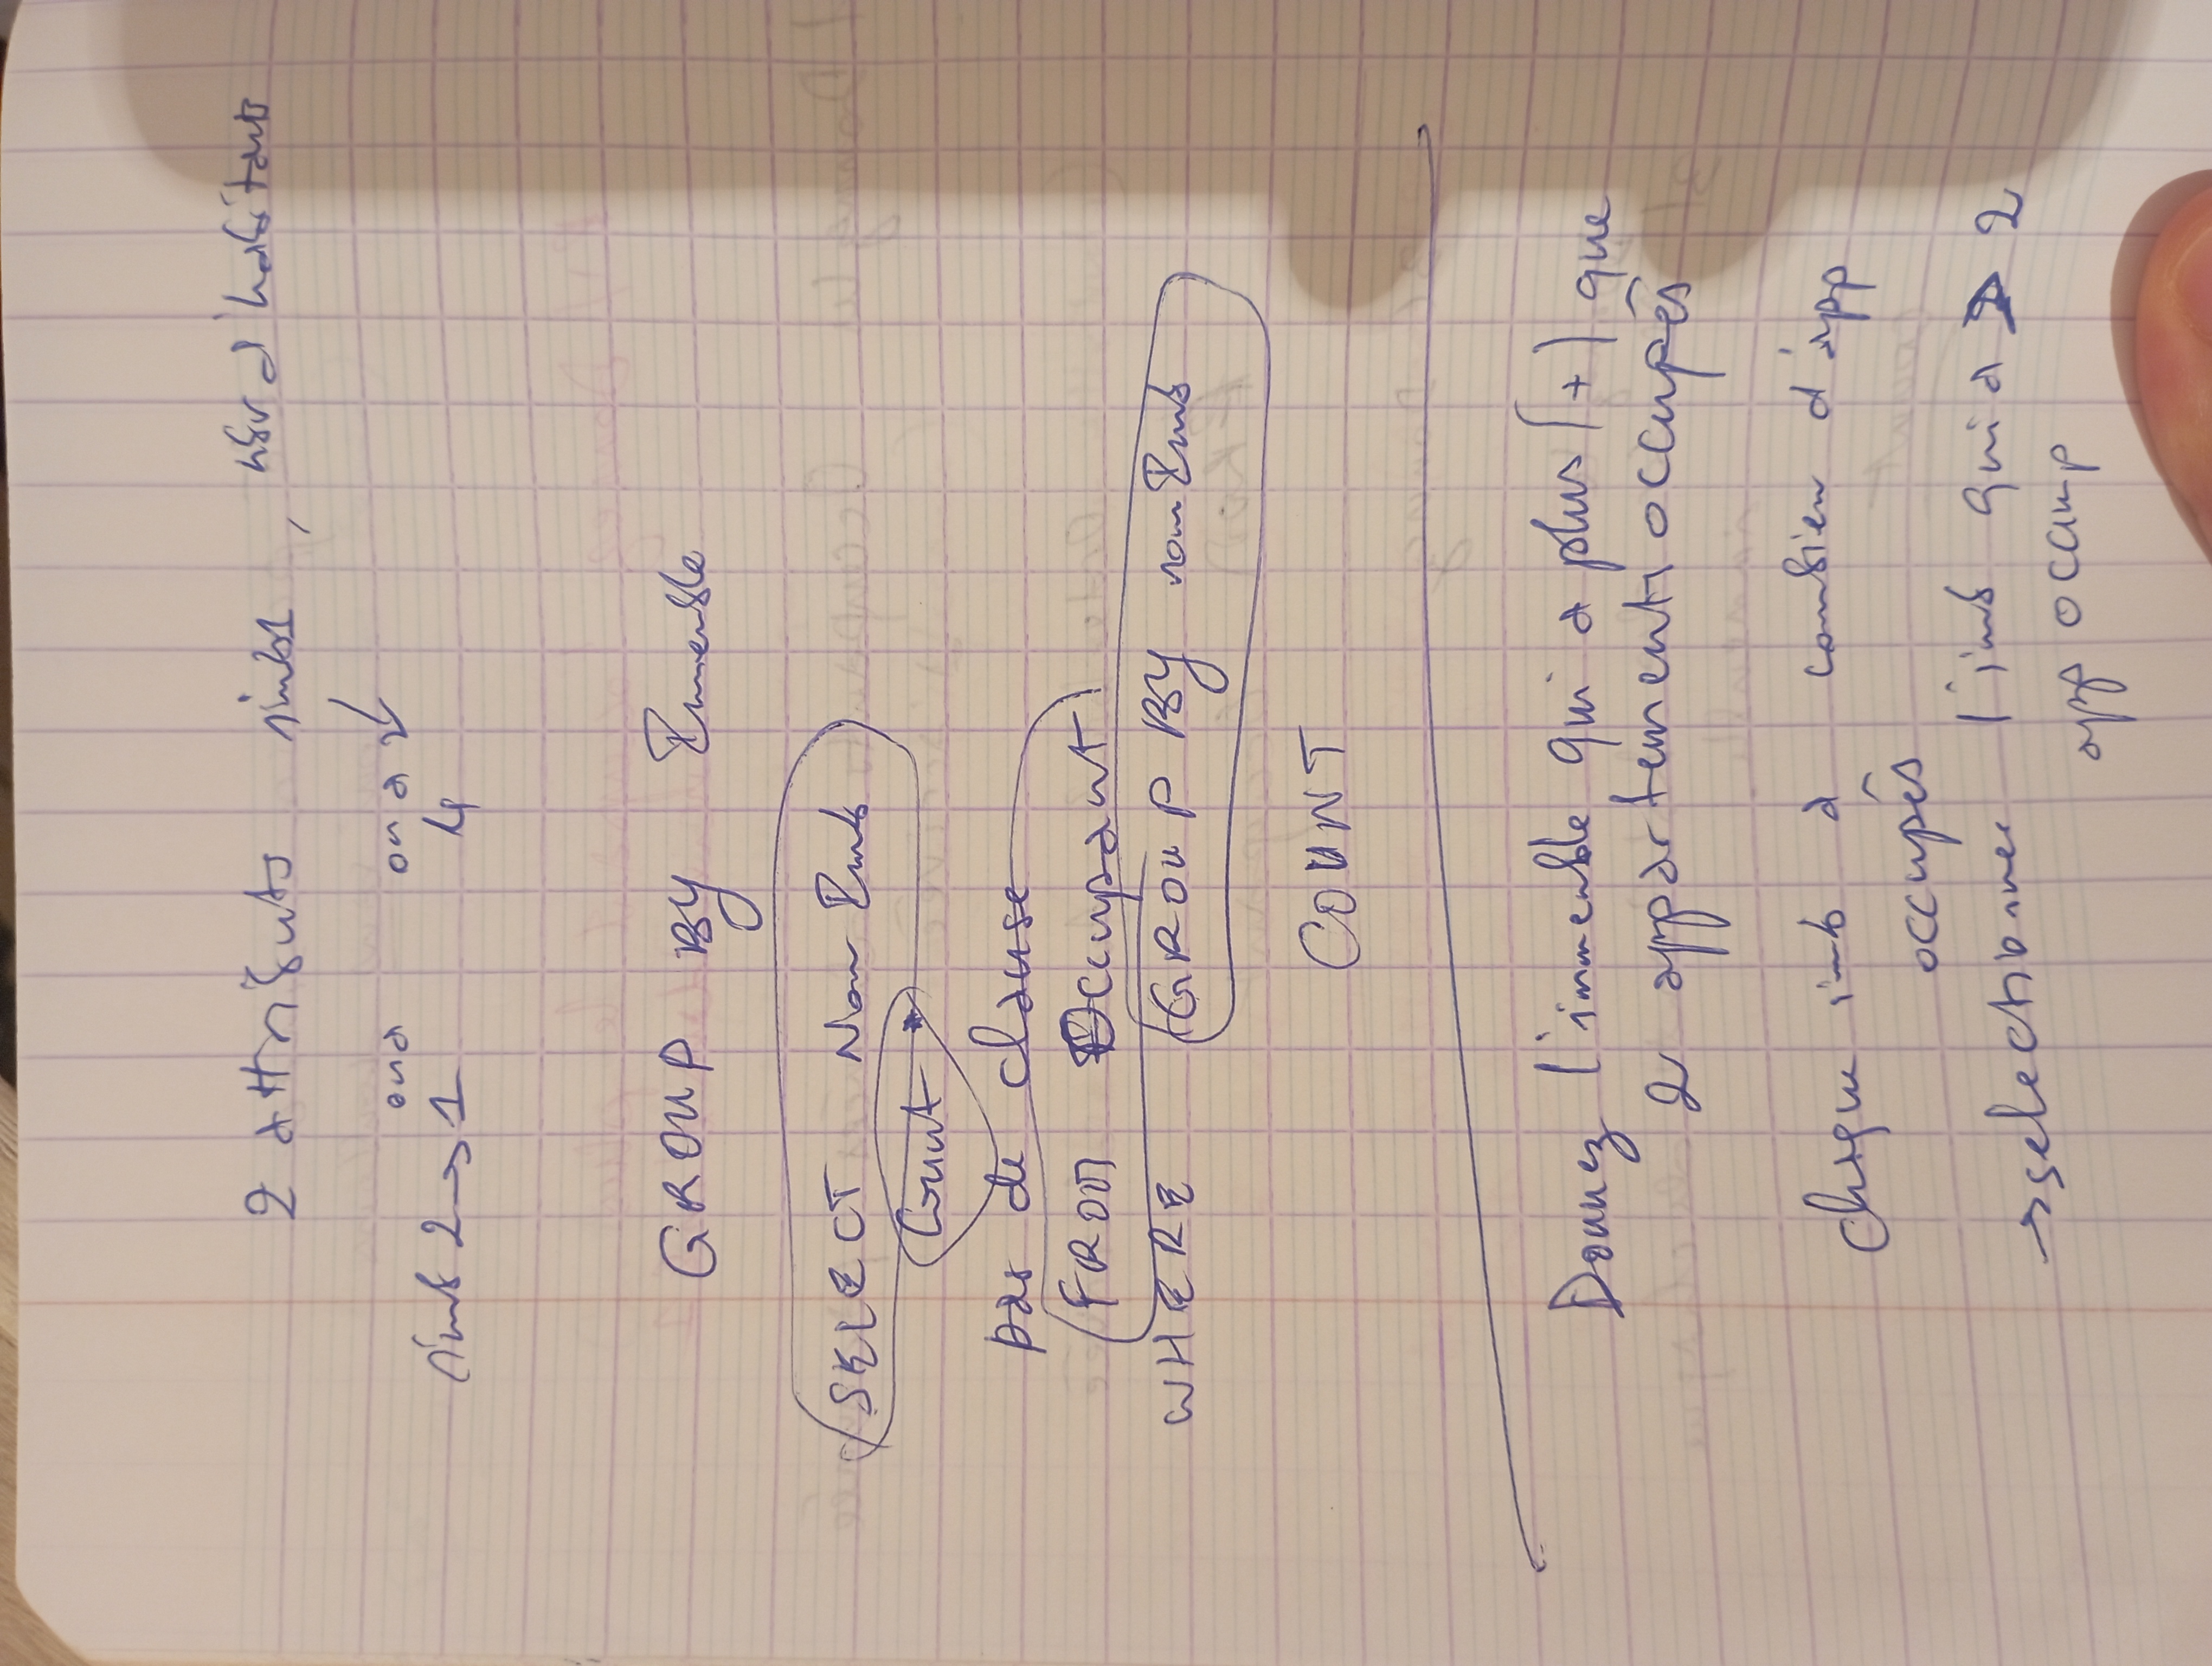 2 attributs nimb1, nbr d'habitants
ona ona 2
nimb 2 → 1 4
GROUP BY Immeuble
SELECT Nom Imb
Count *
pas de clause
FROM Occupant
WHERE GROUP BY nom Imb
COUNT
Donnez l'immeuble qui a plus (+) que
2 appartements occupés
Chaque imb a combien d'app
occupés
→ selectionner l'imb qui a 2
app occup